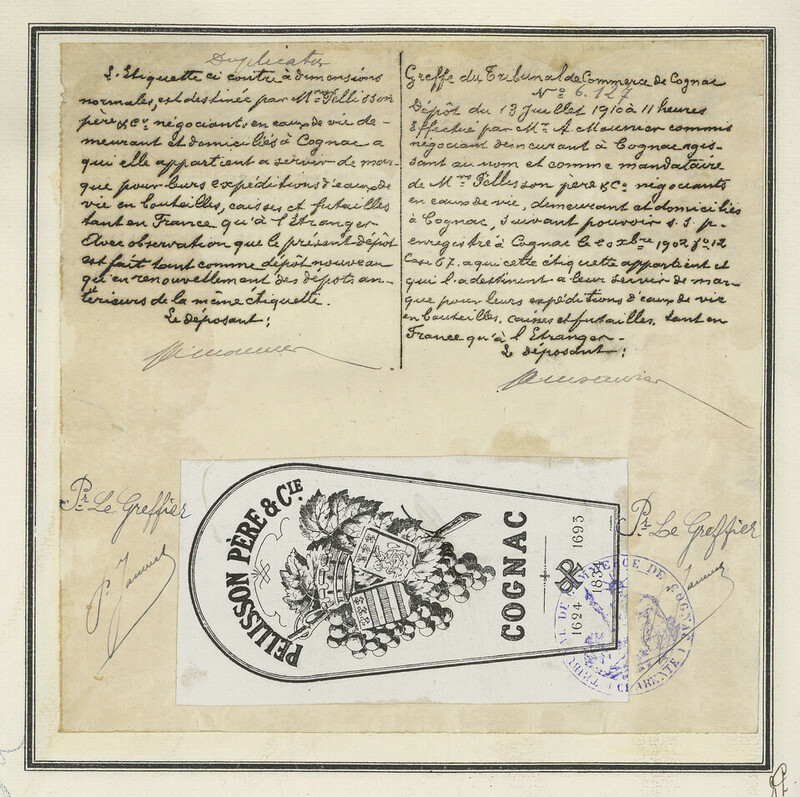 Duplicata
L'Etiquette ci contre à dimensions
normales, est destinée par Mrs Pellisson
père & Co, négociants en eaux de vie de-
meurant et domiciliés à Cognac a
qui elle appartient a servir de mar-
que pour leurs expéditions d'eaux de
vie en bouteilles, caisses et futailles
tant en France qu'à l'Etranger
Avec observation que le présent dépôt
est fait tant comme dépôt nouveau
qu'en renouvellement des dépôts an-
térieurs de la même étiquette.
Le déposant:
Greffe du Tribunal de Commerce de Cognac
No 6.127
Dépôt du 13 Juillet 1910 à 11 heures
Effectué par Mr A. Maunier commis
négociant demeurant à Cognac agis-
sant au nom et comme mandataire
de Mrs Pellisson père & Co négociants
en eaux de vie, demeurant et domiciliés
à Cognac, suivant pouvoir s.s.p.
enregistré à Cognac le xbre 1902 fo 12
Case 67. a qui cette étiquette appartient et
qui l'a destinent a leur servir de mar-
que pour leurs expéditions d'eaux de vie
en bouteilles. caisses et futailles. tant en
France qu'à l'Etranger-
Le déposant:
Pr Le Greffier
PELLISSON PÈRE & CIE.
COGNAC
1624 1837 1693
Pr Le Greffier
TRIBUNAL DE COMMERCE DE COGNAC
(CHARENTE)